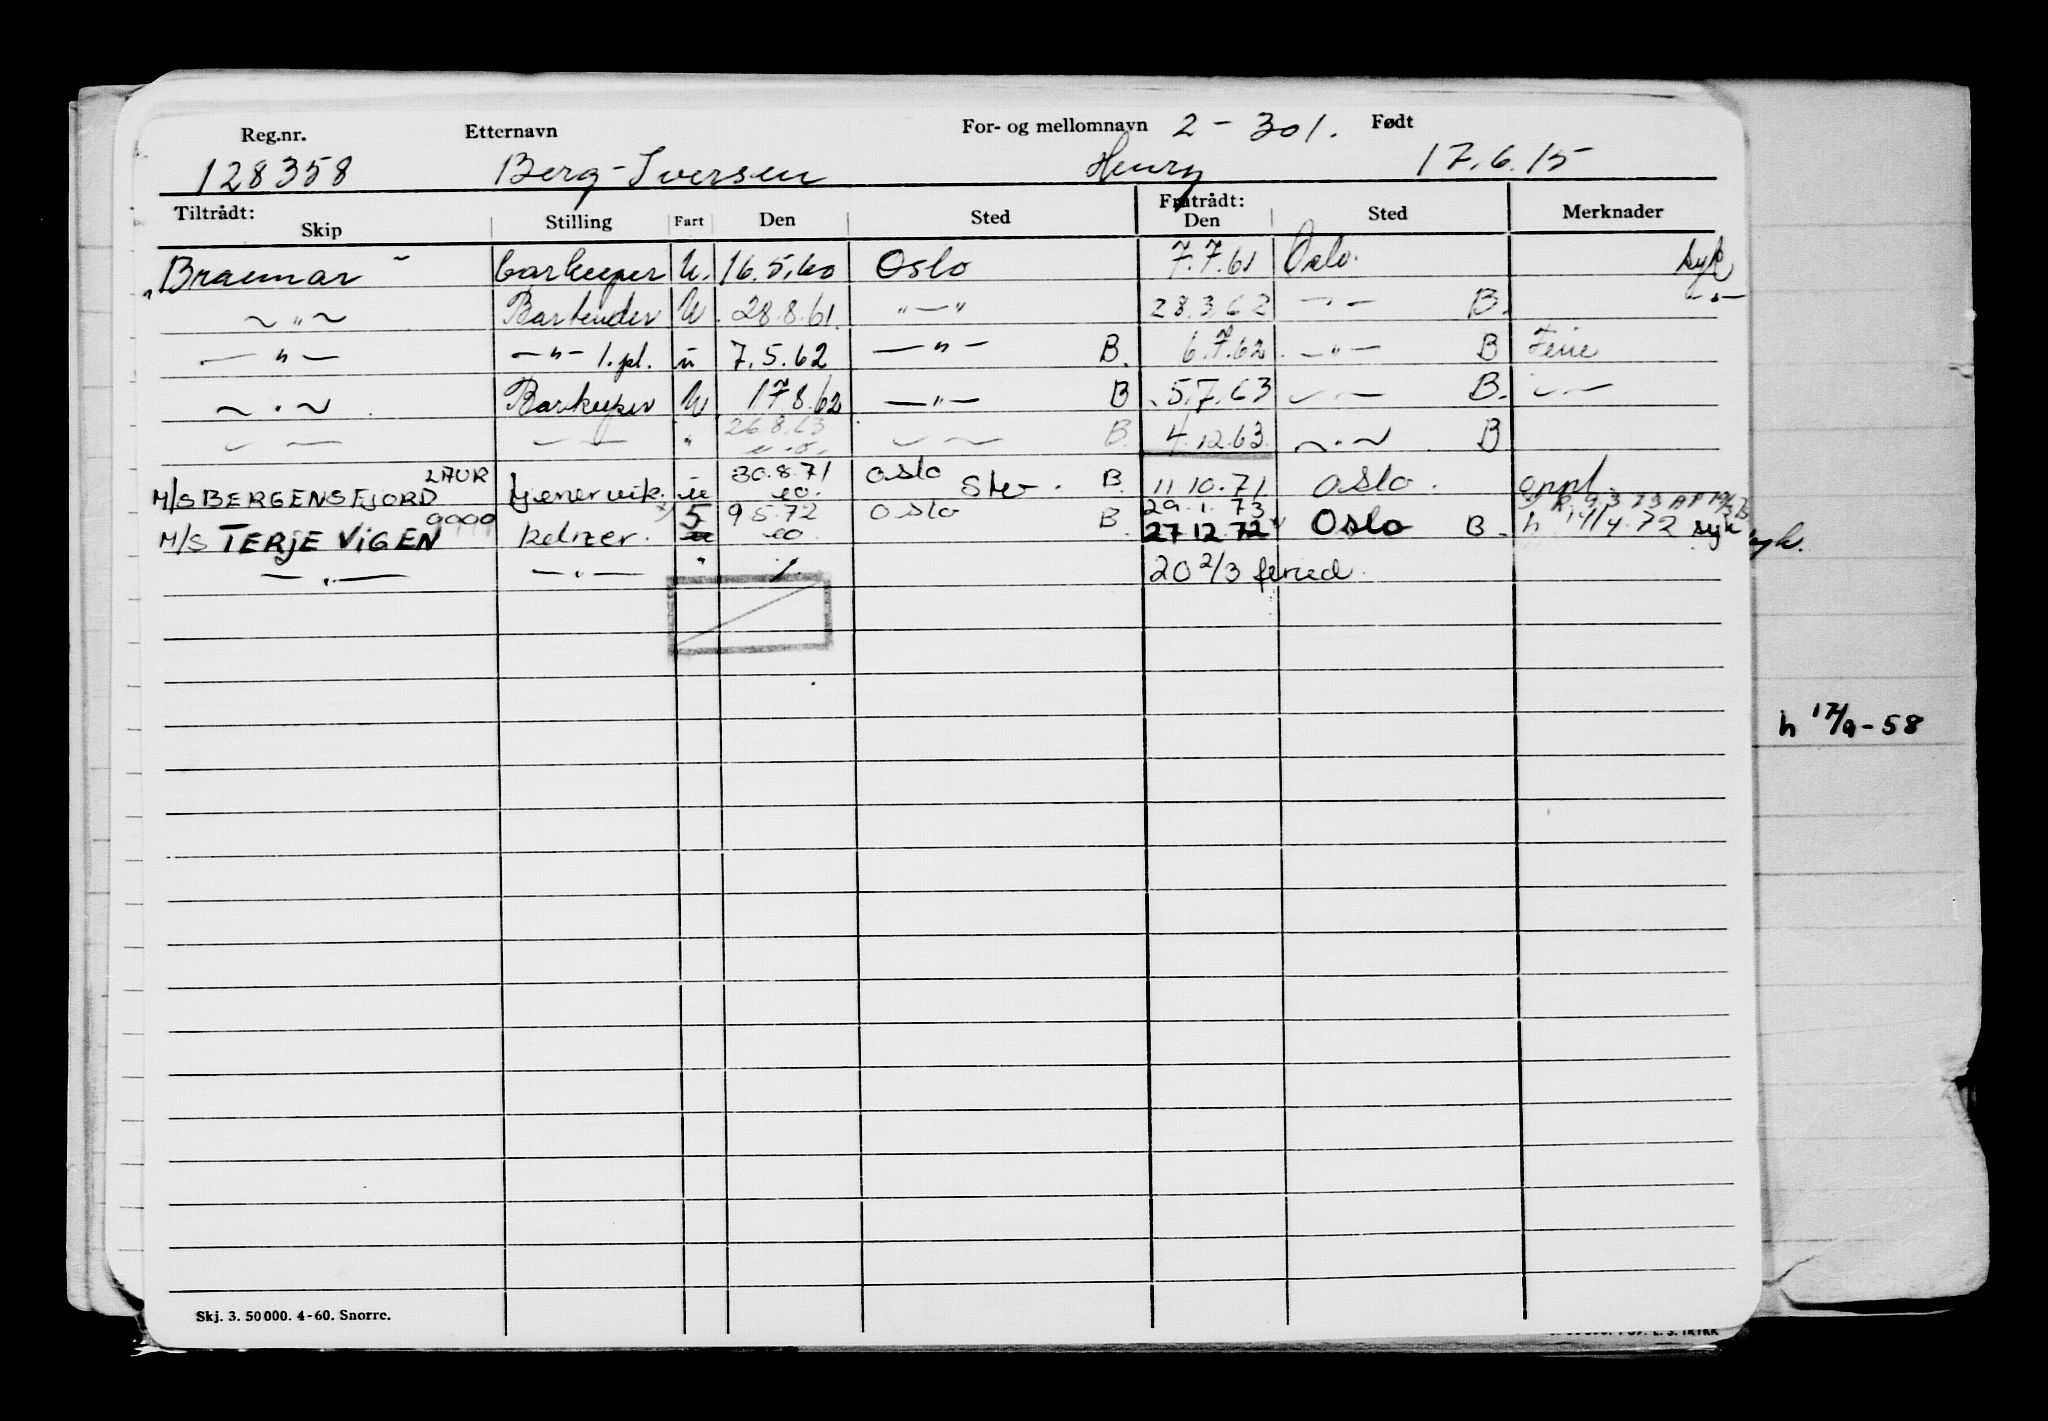 Reg.nr. Etternavn For- og mellomnavn 2-301. Født
128358 Berg-Iversen Henry 17.6.15
Tiltrådt: Fratrådt:
Skip Stilling Fart Den Sted Den Sted Merknader
Braemar barkeeper U. 16.5.60 Oslo 7.7.61 Oslo. syk
~ " ~ Bartender U 28.8.61. " — " 28.3.62 — " — B. — " —
— " — — " — 1.pl. u 7.5.62 — " — B. 6.7.62 — " — B Ferie
~ " ~ Barkeeper U 17.8.62 — " — B 5.7.63 — " — B. — " —
— " — — " — " 26.8.63 — " — B. 4.12.63. ~ " ~ B
M/S BERGENSFJORD LAUR tjener vik. u 30.8.71 Oslo B. 11.10.71 Oslo.
M/S TERJE VIGEN 9999 kelner. 5 9.5.72 Oslo B. 29.1.73 27.12.72 Oslo B. h 14/4.72 syk syk.
— " — — " — " 20 2/3 feried.
h 17/9-58
Skj. 3. 50000. 4-60. Snorre.